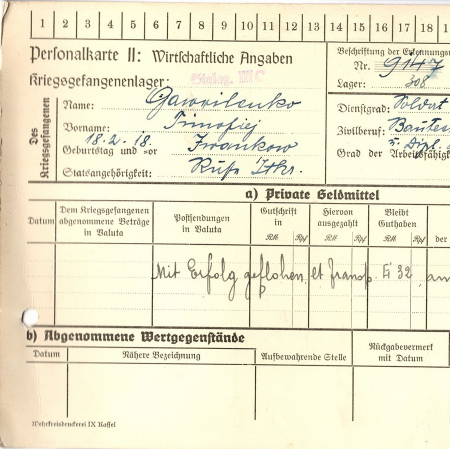 1 2 3 4 5 6 7 8 9 10 11 12 13 14 15 16 17 18
Personalkarte II: Wirtschaftliche Angaben
Beschriftung der Erkennungsm
Nr. 9147
Kriegsgefangenenlager: Stalag III C
Lager: 308
Des Kriegsgefangenen
Name: Gawrilenko
Dienstgrad: Soldat
Vorname: Timofiej
Zivilberuf: Bauten
18.2.18.
u. Dipl.
Geburtstag und -ort Iwankow
Grad der Arbeitsfähigk
Staatsangehörigkeit: Ruße
a) Private Geldmittel
Datum
Dem Kriegsgefangenen abgenommene Beträge in Valuta
Postsendungen in Valuta
Gutschrift in
RM Rpf
Hiervon ausgezahlt
RM Rpf
Bleibt Guthaben
RM Rpf
der
Mit Erfolg geflohen lt Transp. 32 am
b) Abgenommene Wertgegenstände
Datum
Nähere Bezeichnung
Aufbewahrende Stelle
Rückgabevermerk mit Datum
Wehrkreisdruckerei IX Kassel